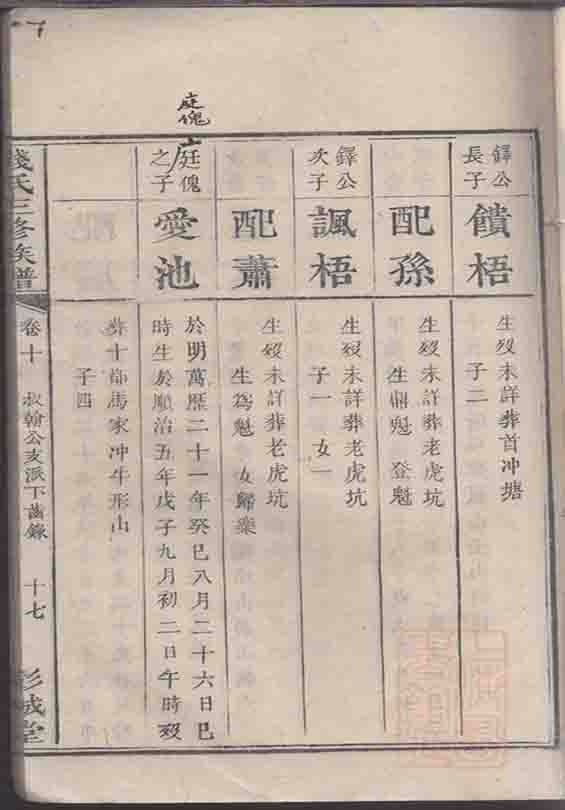 鐸公
長子
饋梧
生歿未詳葬首冲塘
子二
配孫
生歿未詳葬老虎坑
生鼎魁 登魁
鐸公
次子
諷梧
生歿未詳葬老虎坑
子一 女一
配蕭
生歿未詳葬老虎坑
生爲魁 女歸粟
庭傀
庭傀
之子
愛池
於明萬歷二十一年癸巳八月二十六日巳
時生於順治五年戊子九月初二日午時歿
葬十都馬家冲牛形山
子四
錢氏三修族譜
卷十
叔翰公支派下齒錄
十七
彭城堂